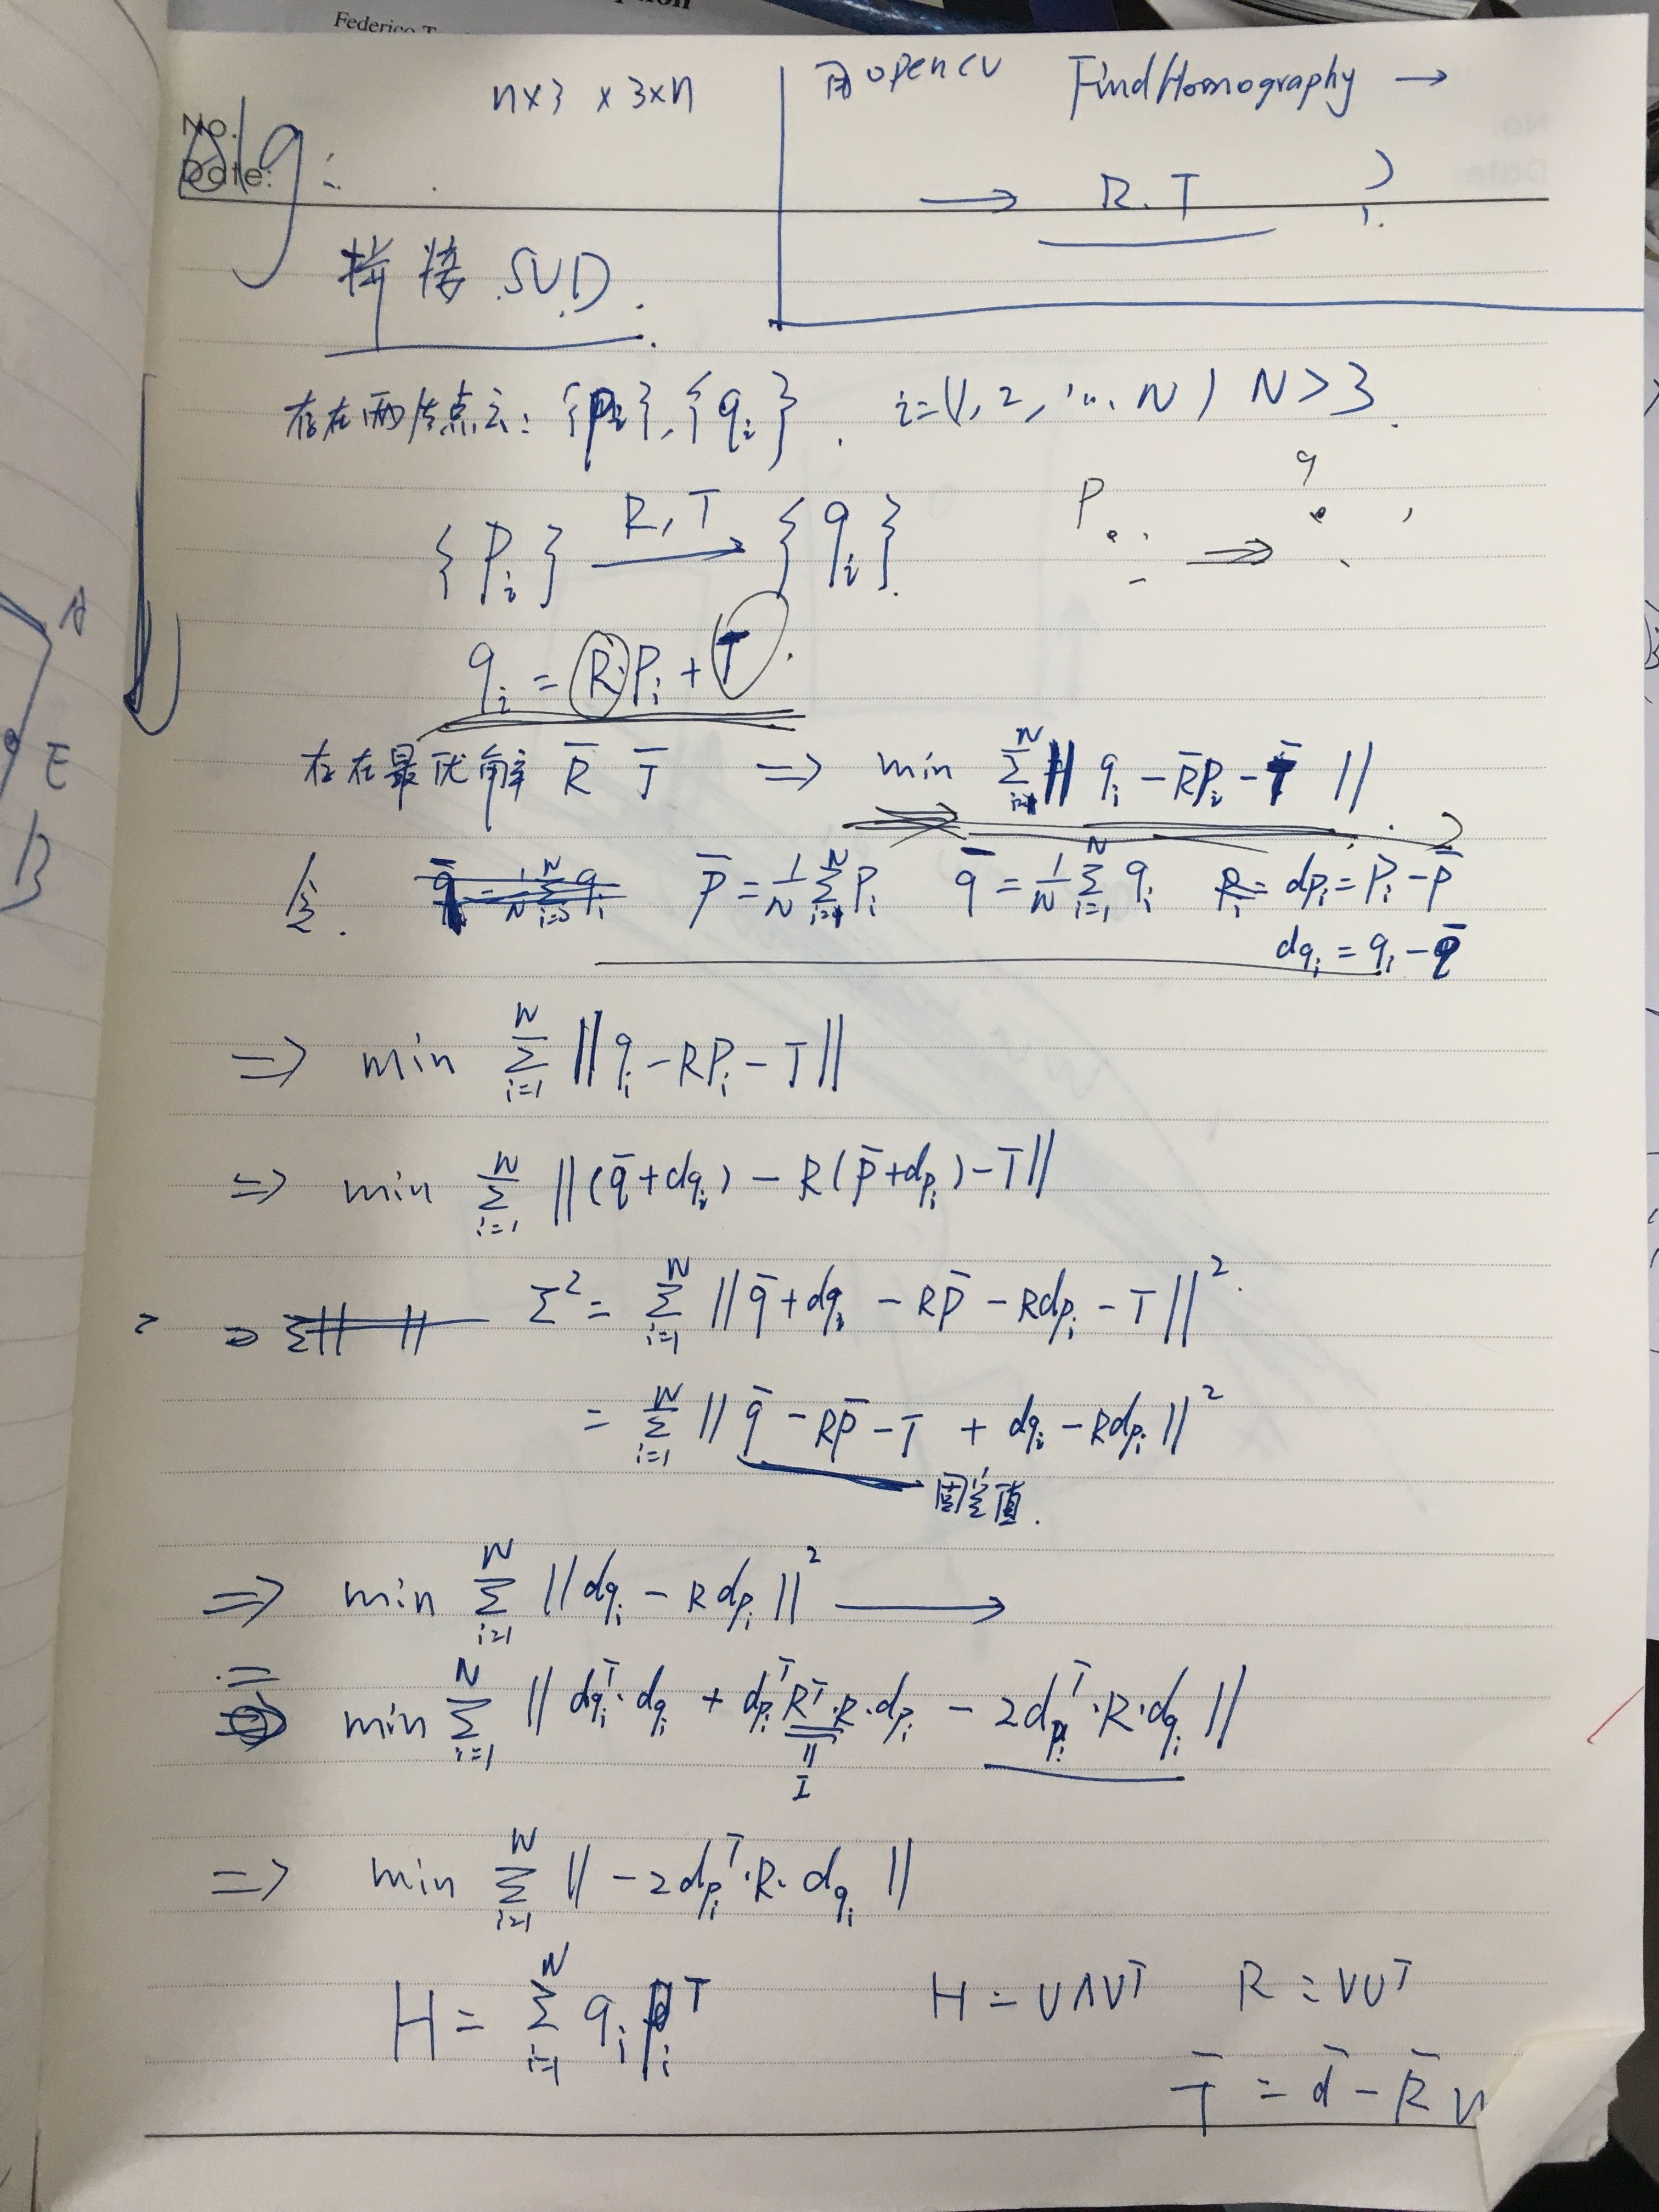 Federico T
No.
Date:
Alg:
n×3 × 3×n
用opencv FindHomography →
→ R.T ?
拼接 SVD.
存在两片点云: {pi}, {qi}. i=(1, 2, ..., N) N>3.
{Pi} R,T → {qi}.
P ⇒ q
qi = R·Pi + T.
存在最优解 R̄ T̄ ⇒ min Σ_{i=1}^{N} || qi - R̄Pi - T̄ ||
令. p̄ = 1/N Σ_{i=1}^{N} Pi q̄ = 1/N Σ_{i=1}^{N} qi dpi = Pi - p̄
dqi = qi - q̄
⇒ min Σ_{i=1}^{N} || qi - RPi - T ||
⇒ min Σ_{i=1}^{N} || (q̄ + dqi) - R(p̄ + dpi) - T ||
⇒ Σ² = Σ_{i=1}^{N} || q̄ + dqi - Rp̄ - Rdpi - T ||².
= Σ_{i=1}^{N} || q̄ - Rp̄ - T + dqi - Rdpi ||²
固定值.
⇒ min Σ_{i=1}^{N} || dqi - Rdpi ||² →
= min Σ_{i=1}^{N} || dqi^T·dqi + dpi^T R^T·R·dpi - 2dpi^T·R·dqi ||
I
⇒ min Σ_{i=1}^{N} || -2dpi^T·R·dqi ||
H = Σ_{i=1}^{N} qi pi^T H = UΛV^T R = VU^T
T̄ = d̄ - R̄
A
E
B